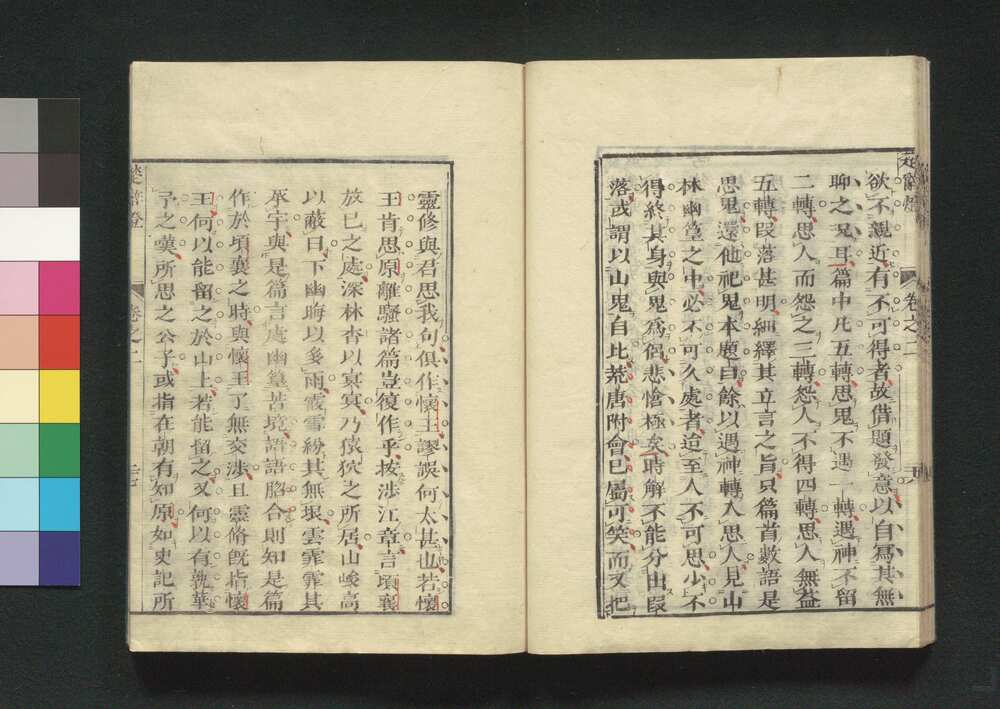 欲不親近有不可得者故借題發意以自寫其無
聊之况耳篇中凡五轉思鬼不遇一轉遇神不留
二轉思人而怨之三轉怨人不得四轉思人無益
五轉段落甚明細繹其立言之旨只篇首數語是
思鬼還他祀鬼本題自餘以遇神轉入思人見山
林幽篁之中必不可久處者迨至人不可思少不
得終其身與鬼爲侶悲愴極矣時解不能分出段
落或謂以山鬼自比荒唐附會已屬可笑而又把
靈修與君思我句俱作懷王謬誤何太甚也若懷
王肯思原離騷諸篇豈復作乎按涉江章言頃襄
放已之處深林杳以冥冥乃猿狖之所居山峻高
以蔽日下幽晦以多雨霰雪紛其無垠雲霏霏其
承宇與是篇言處幽篁苦境語語脗合則知是篇
作於頃襄之時與懷王了無交涉且靈脩旣指懷
王何以能留之於山上若能留之又何以有孰華
予之嘆所思之公子或指在朝有知原如史記所
楚辭燈
卷之二